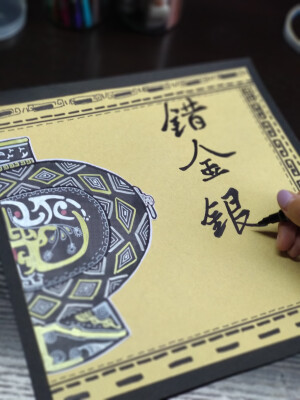 错金银